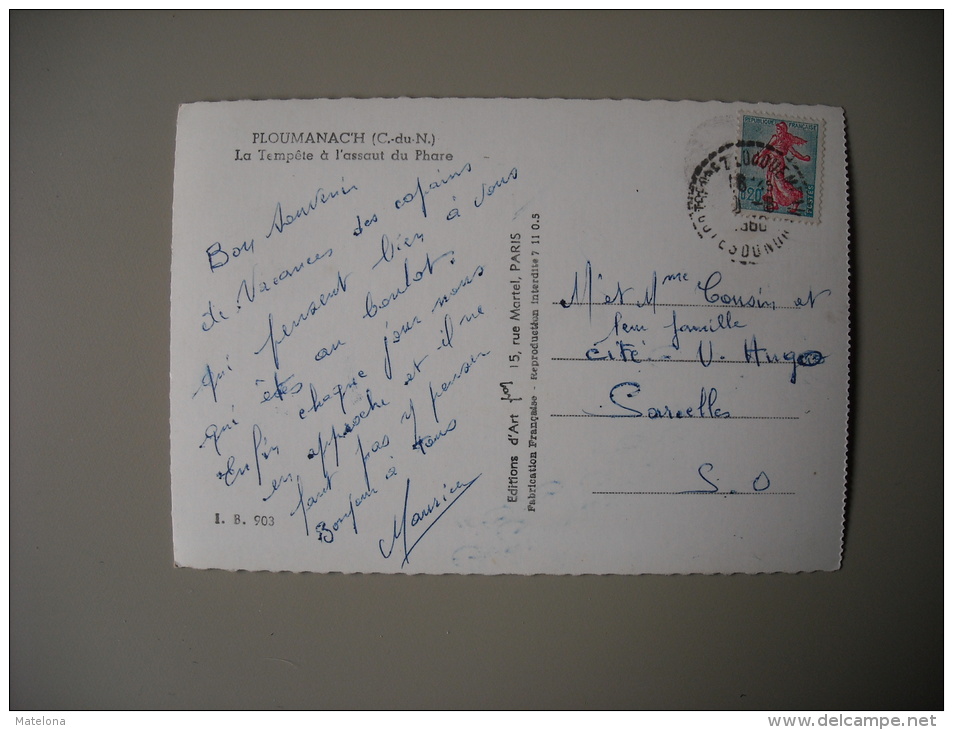 PLOUMANAC'H (C.-du-N.)
La Tempête à l'assaut du Phare
Bon Souvenir
de Vacances des copains
qui pensent bien à vous
qui êtes au boulot.
Enfin chaque jour nous
en approche et il ne
faut pas y penser
Bonjour à tous
Maurice
I. B. 903
Editions d'Art 15, rue Martel, PARIS
Fabrication Française - Reproduction Interdite 7 11 0.5
REPUBLIQUE FRANÇAISE
0,20
1960
COTES DU NORD
Mr et Mme Cousin et
leur famille
Cité - V. Hugo
Sarcelles
S. O
Matelona
delcampe.net